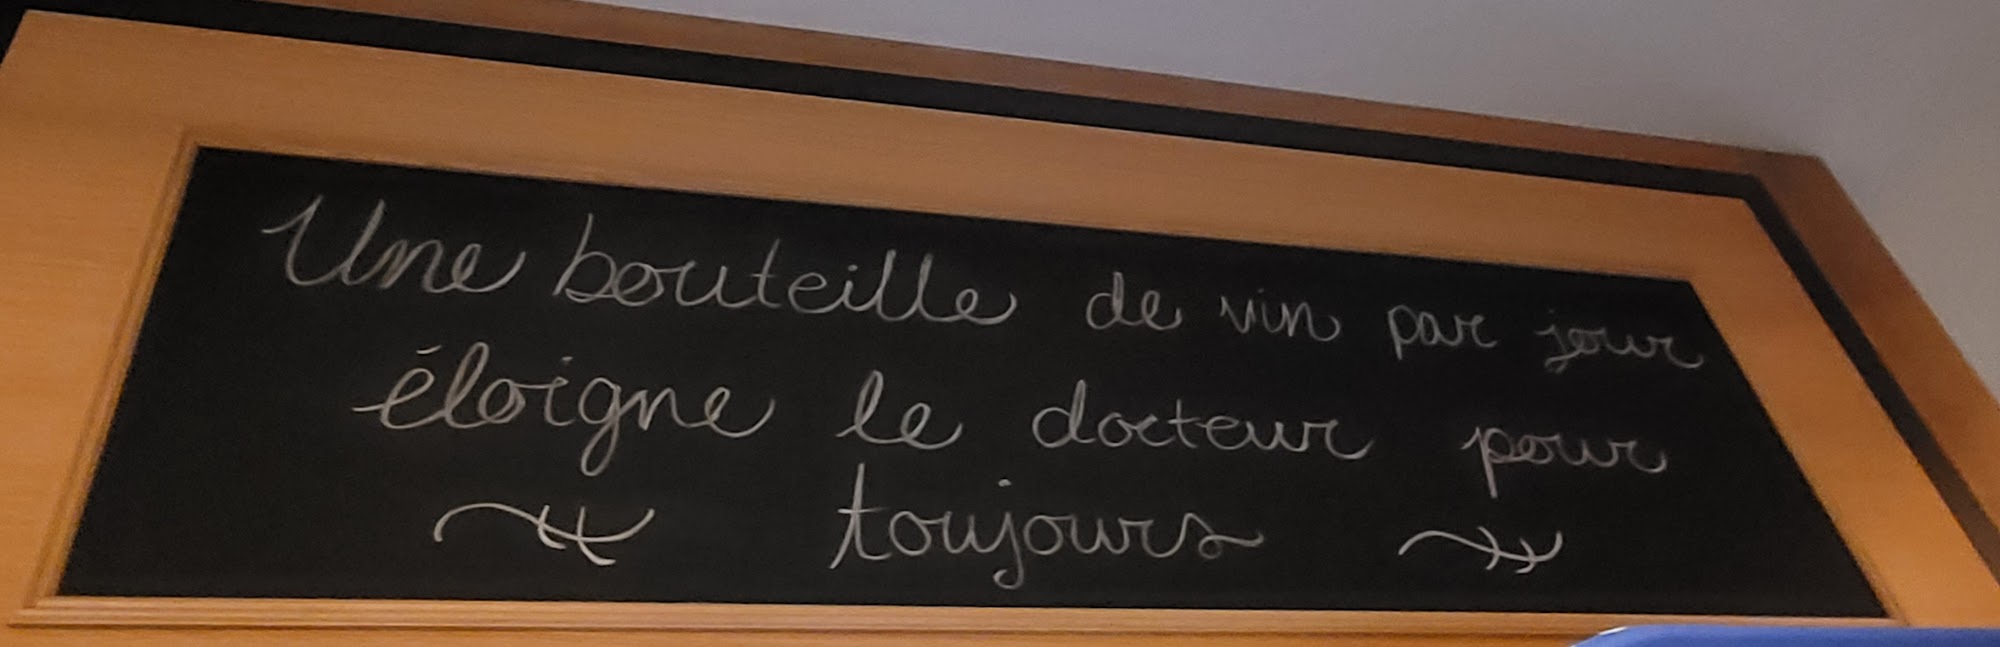 Une bouteille de vin par jour
éloigne le docteur pour
toujours